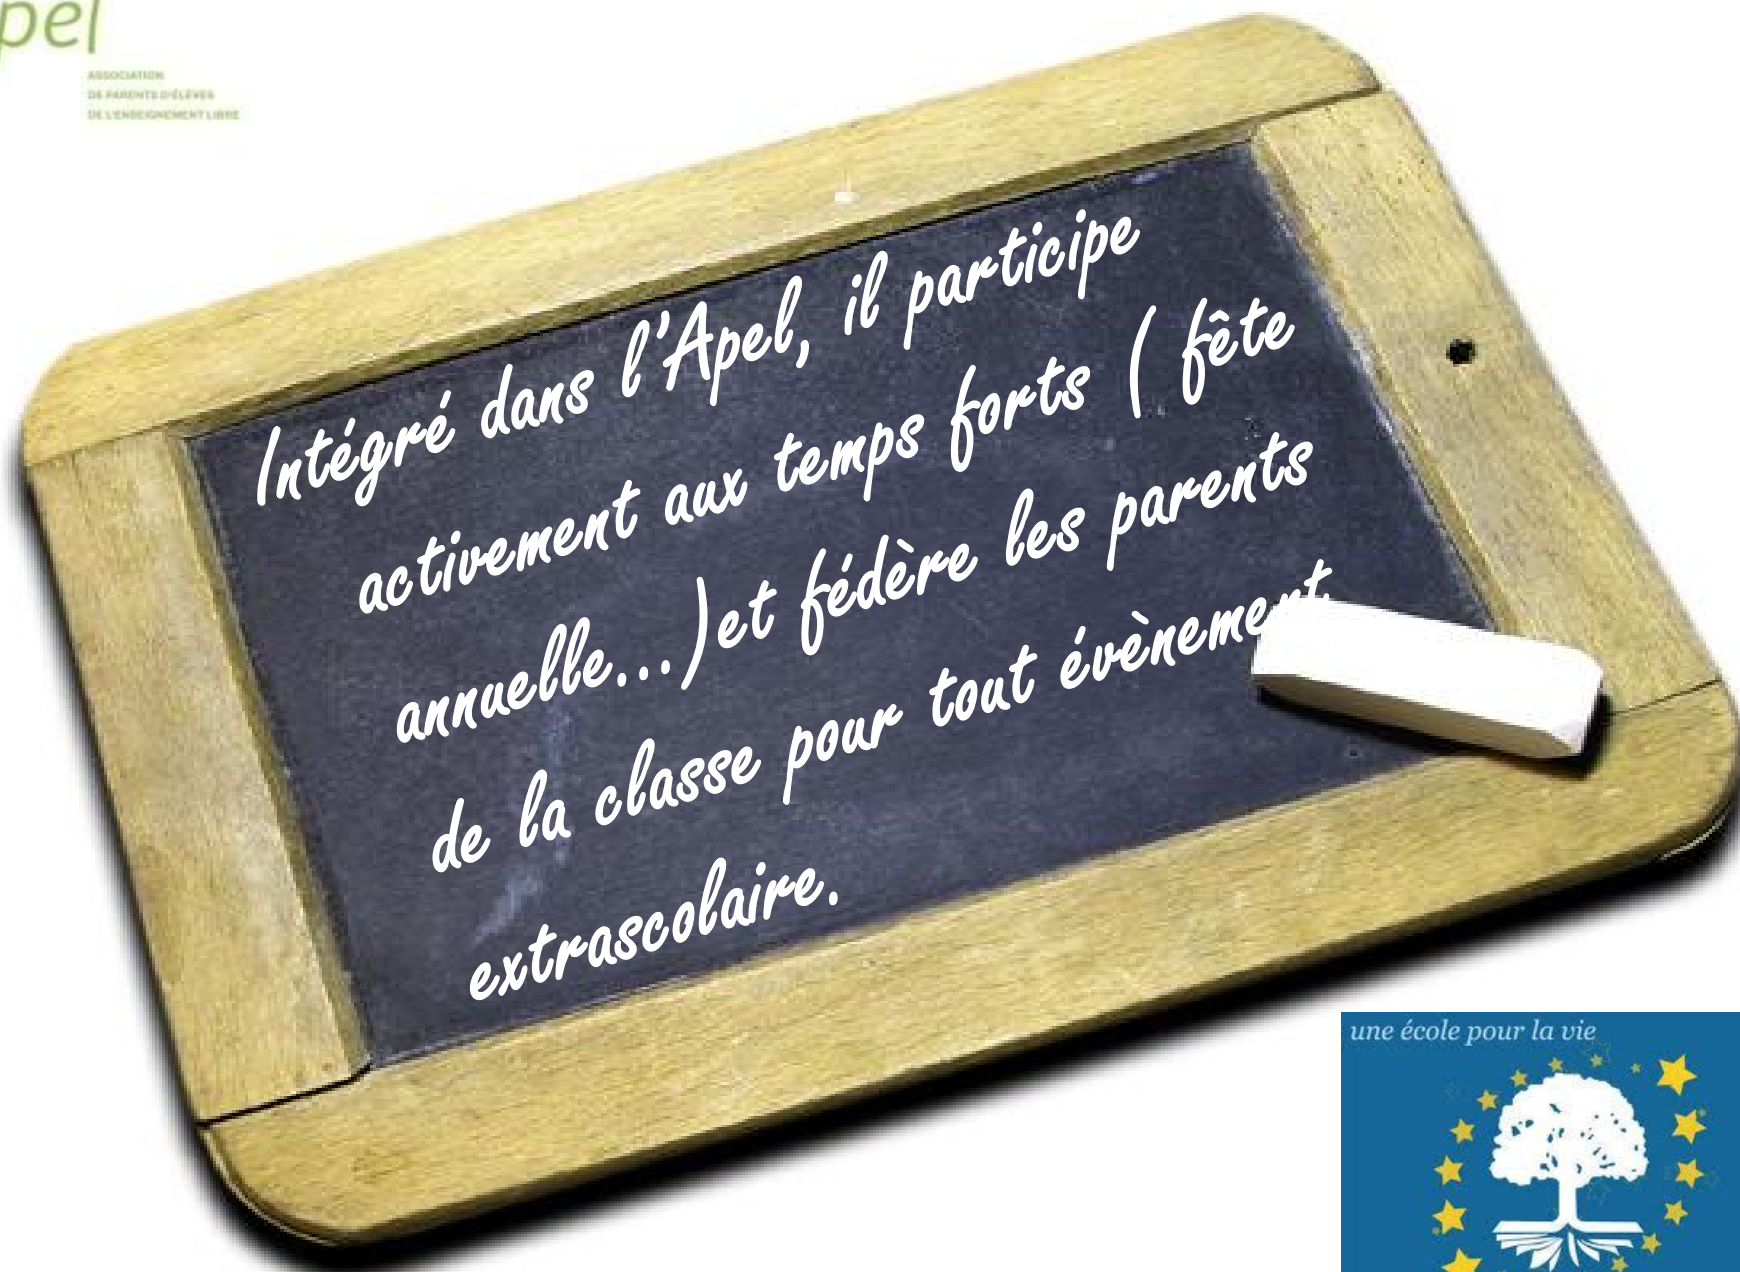 pel
ASSOCIATION
DE PARENTS D'ÉLÈVES
DE L'ENSEIGNEMENT LIBRE
Intégré dans l'Apel, il participe
activement aux temps forts ( fête
annuelle...)et fédère les parents
de la classe pour tout évènement
extrascolaire.
une école pour la vie